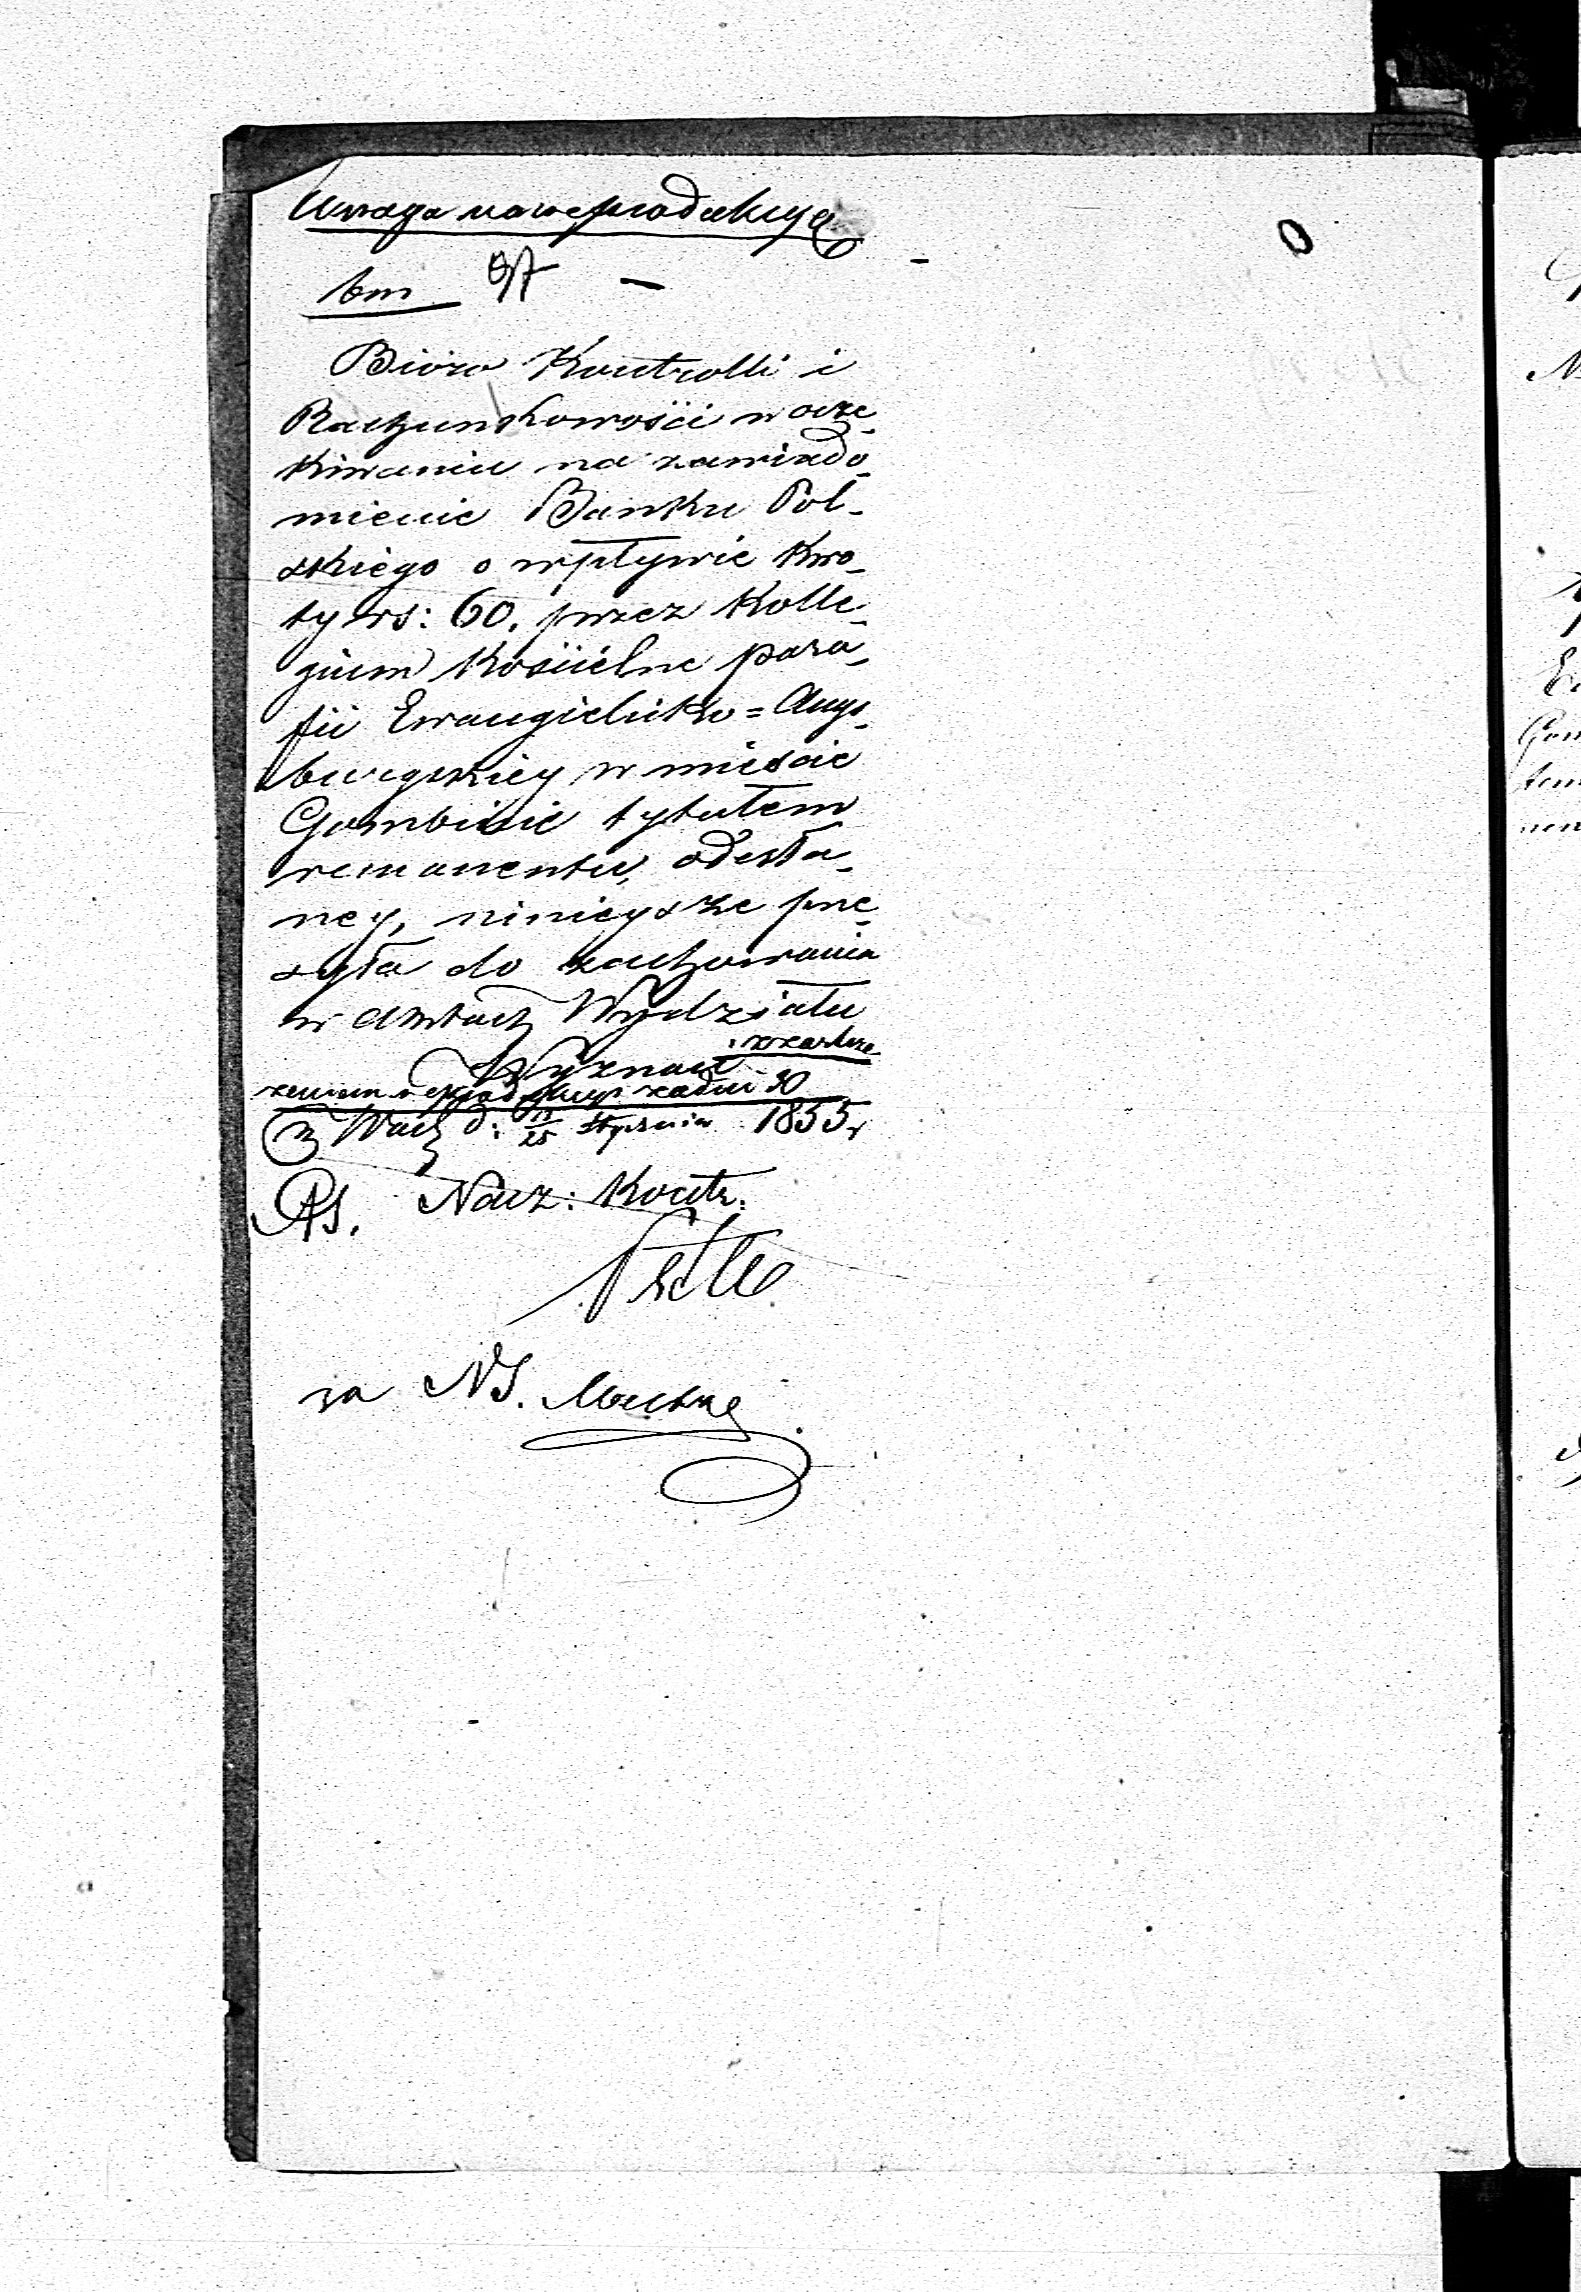 Uwaga na reprodukcyą
tom 97 —
Bióro Kontrolli i
Rachunkowości w ocze-
kiwaniu na zawiado-
mienie Banku Pol-
skiego o wpływie kwo-
ty rs: 60. przez Kolle-
gium Kościelne para-
fii Ewangielicko=Augs-
burgskiey w mieście
Gombinie tytułem
remanentu, odesła-
ney, ninieysze prze-
syła do zachowania
w aktach Wydziału
Wyznań z zastrze-
żeniem reprodukcyi za dni 30
W d: 13/25 Stycznia 1855 r
Nacz: Kontr:
za NS.